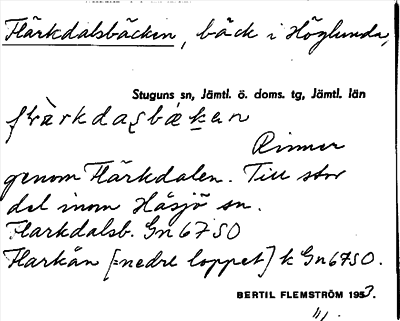 Flärkdalsbäcken, bäck i Höglunda,
Stuguns sn, Jämtl. ö. doms. tg, Jämtl. län
Rinner
genom Flärkdalen. Till stor
del inom Häsjö sn.
Flarkdalsb. Gn 67 SO
Flarkån [=nedre loppet] k Gn 67 SO.
BERTIL FLEMSTRÖM 1953.